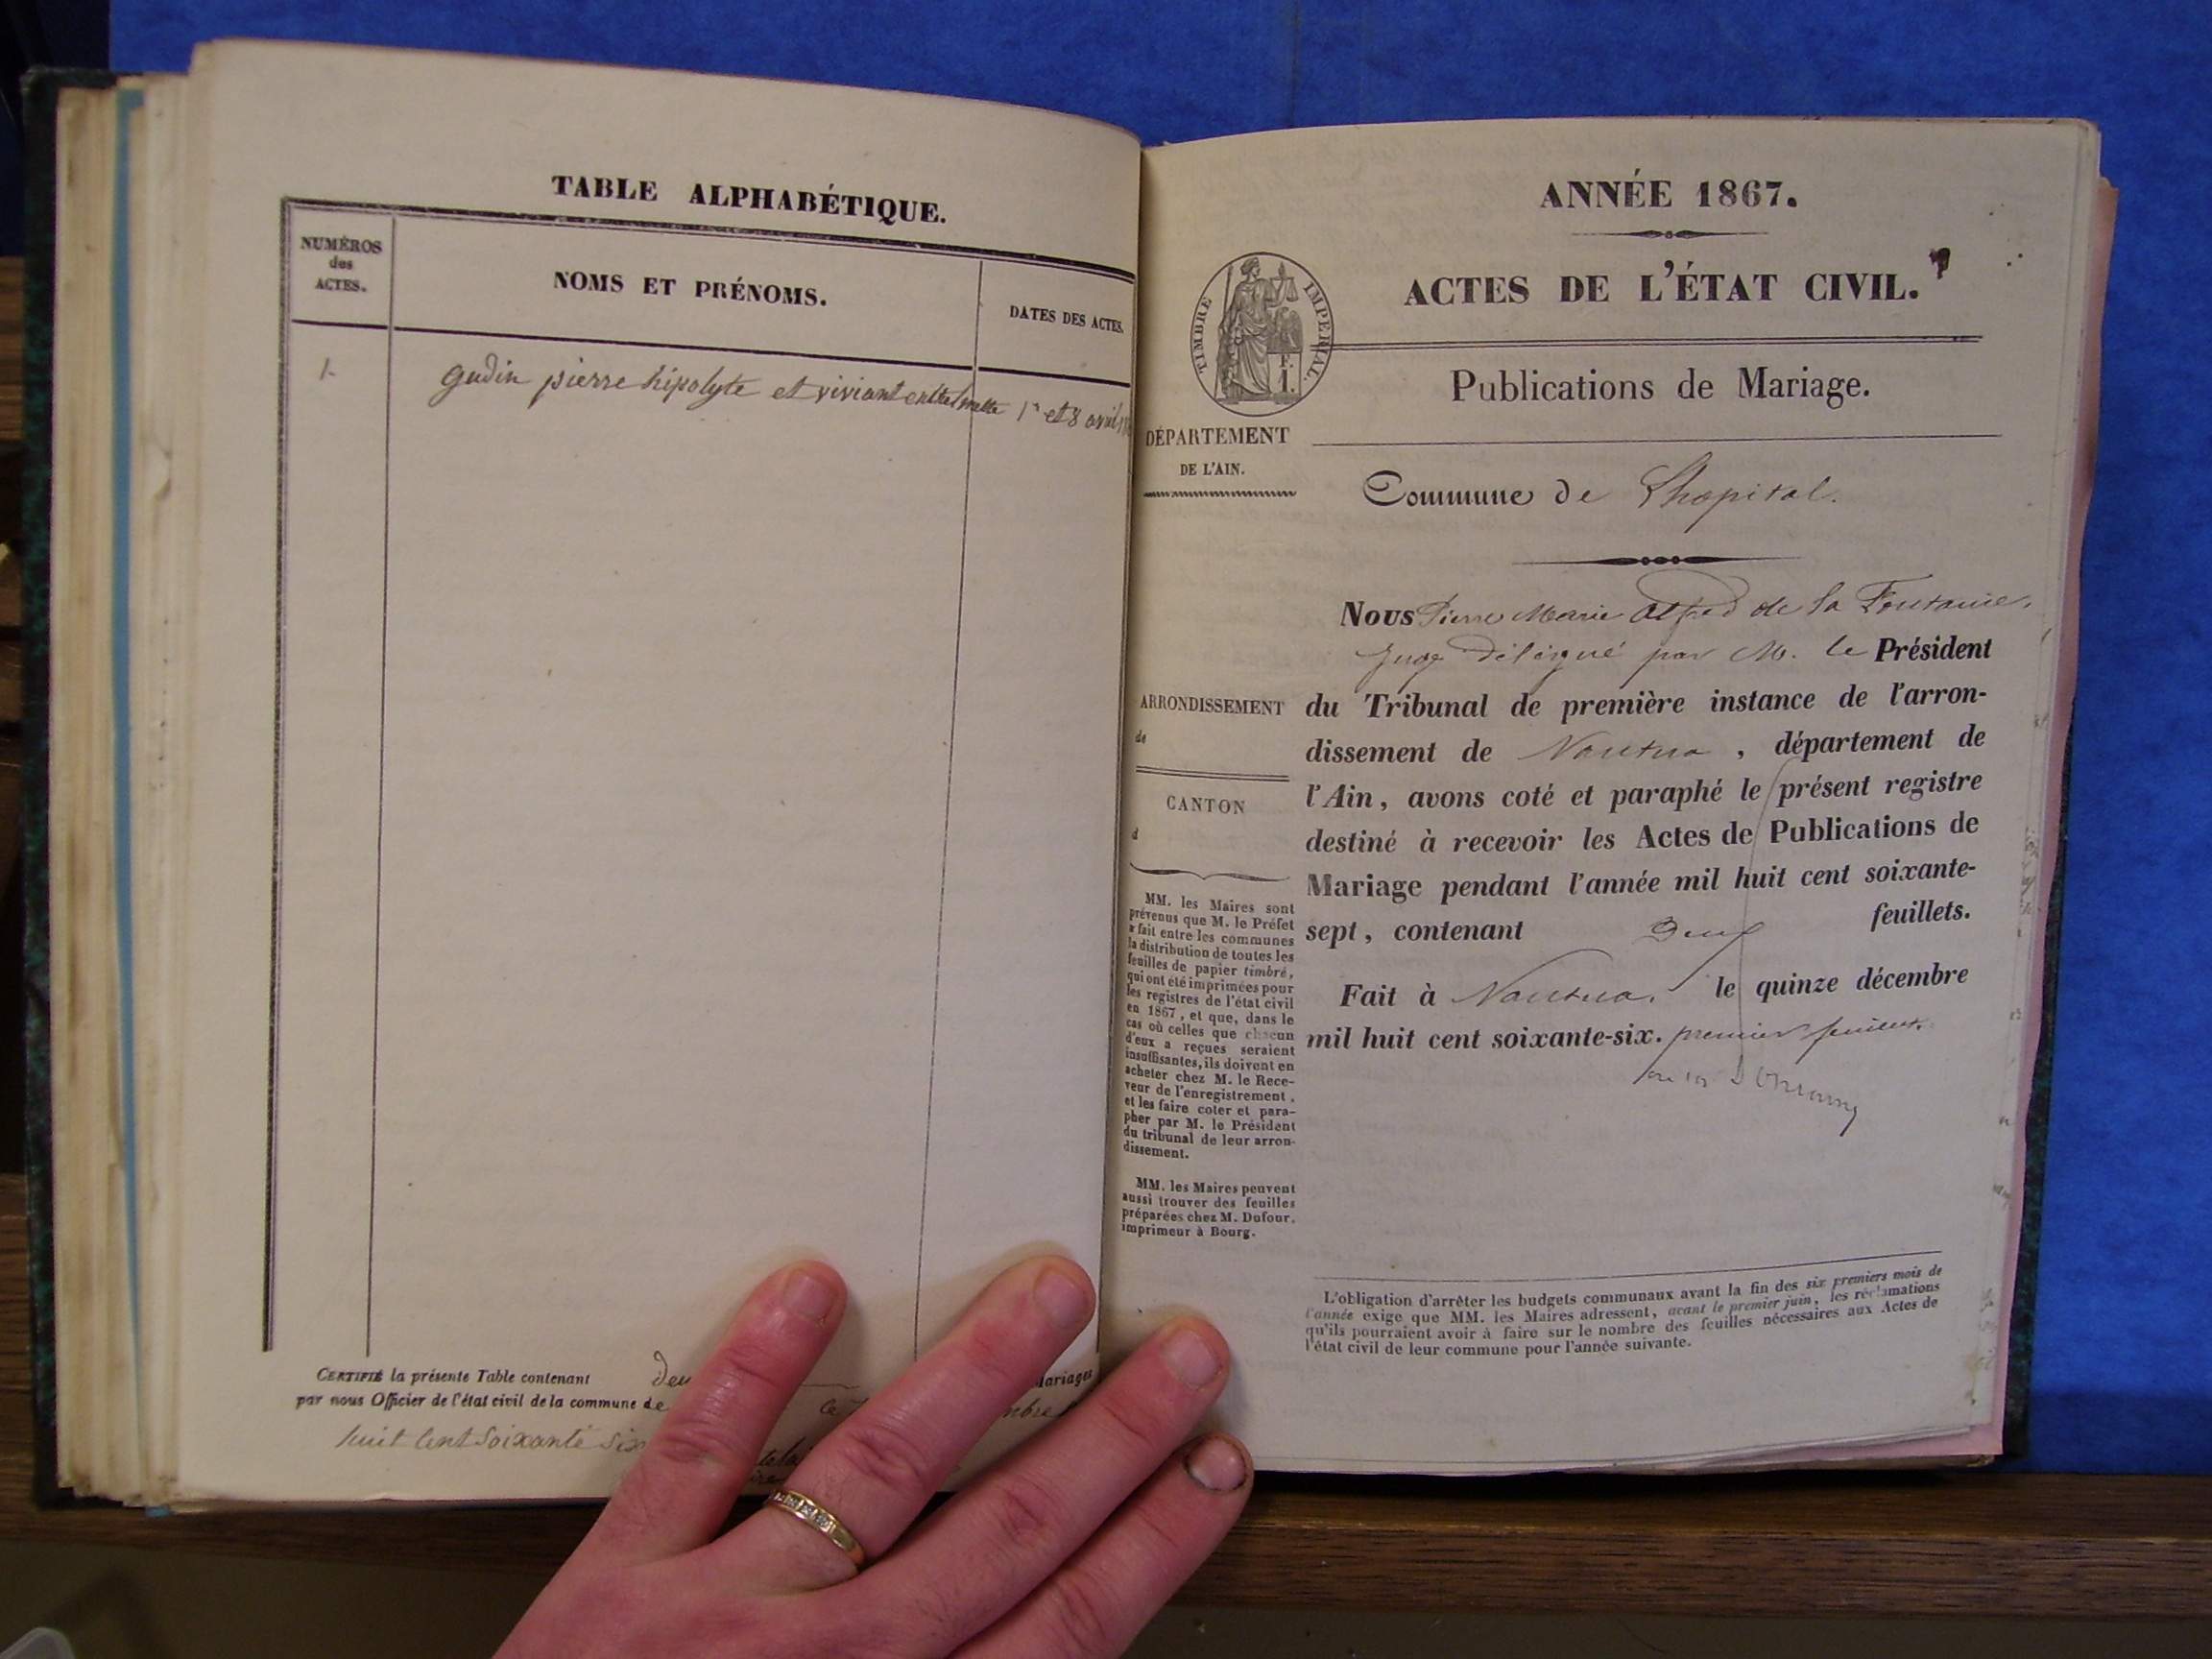 TABLE ALPHABÉTIQUE.
NUMÉROS
des
ACTES.
NOMS ET PRÉNOMS.
DATES DES ACTES.
1. gudin pierre hipolyte et viviant 1er et 8 avril
CERTIFIÉ la présente Table contenant
par nous Officier de l'état civil de la commune de
huit cent soixante six
ANNÉE 1867.
TIMBRE IMPERIAL.
F.
1.
ACTES DE L'ÉTAT CIVIL.
Publications de Mariage.
DÉPARTEMENT
DE L'AIN.
Commune de Lhopital.
Nous Pierre Marie Alfred de la Fontaine,
Juge délégué par M. le Président
du Tribunal de première instance de l'arron-
dissement de Nantua, département de
l'Ain, avons coté et paraphé le présent registre
destiné à recevoir les Actes de Publications de
Mariage pendant l'année mil huit cent soixante-
sept, contenant Deux feuillets.
Fait à Nantua, le quinze décembre
mil huit cent soixante-six. premier feuillet
ARRONDISSEMENT
de
CANTON
d
MM. les Maires sont
prévenus que M. le Préfet
a fait entre les communes
la distribution de toutes les
feuilles de papier timbré,
qui ont été imprimées pour
les registres de l'état civil
en 1867, et que, dans le
cas où celles que chacun
d'eux a reçues seraient
insuffisantes, ils doivent en
acheter chez M. le Rece-
veur de l'enregistrement,
et les faire coter et para-
pher par M. le Président
du tribunal de leur arron-
dissement.
MM. les Maires peuvent
aussi trouver des feuilles
préparées chez M. Dufour,
imprimeur à Bourg.
L'obligation d'arrêter les budgets communaux avant la fin des six premiers mois de
l'année exige que MM. les Maires adressent, avant le premier juin, les réclamations
qu'ils pourraient avoir à faire sur le nombre des feuilles nécessaires aux Actes de
l'état civil de leur commune pour l'année suivante.